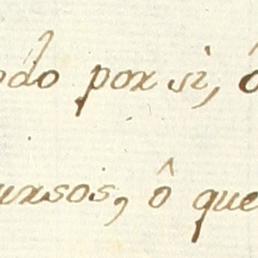 odo por si, ó
ursos, ô que